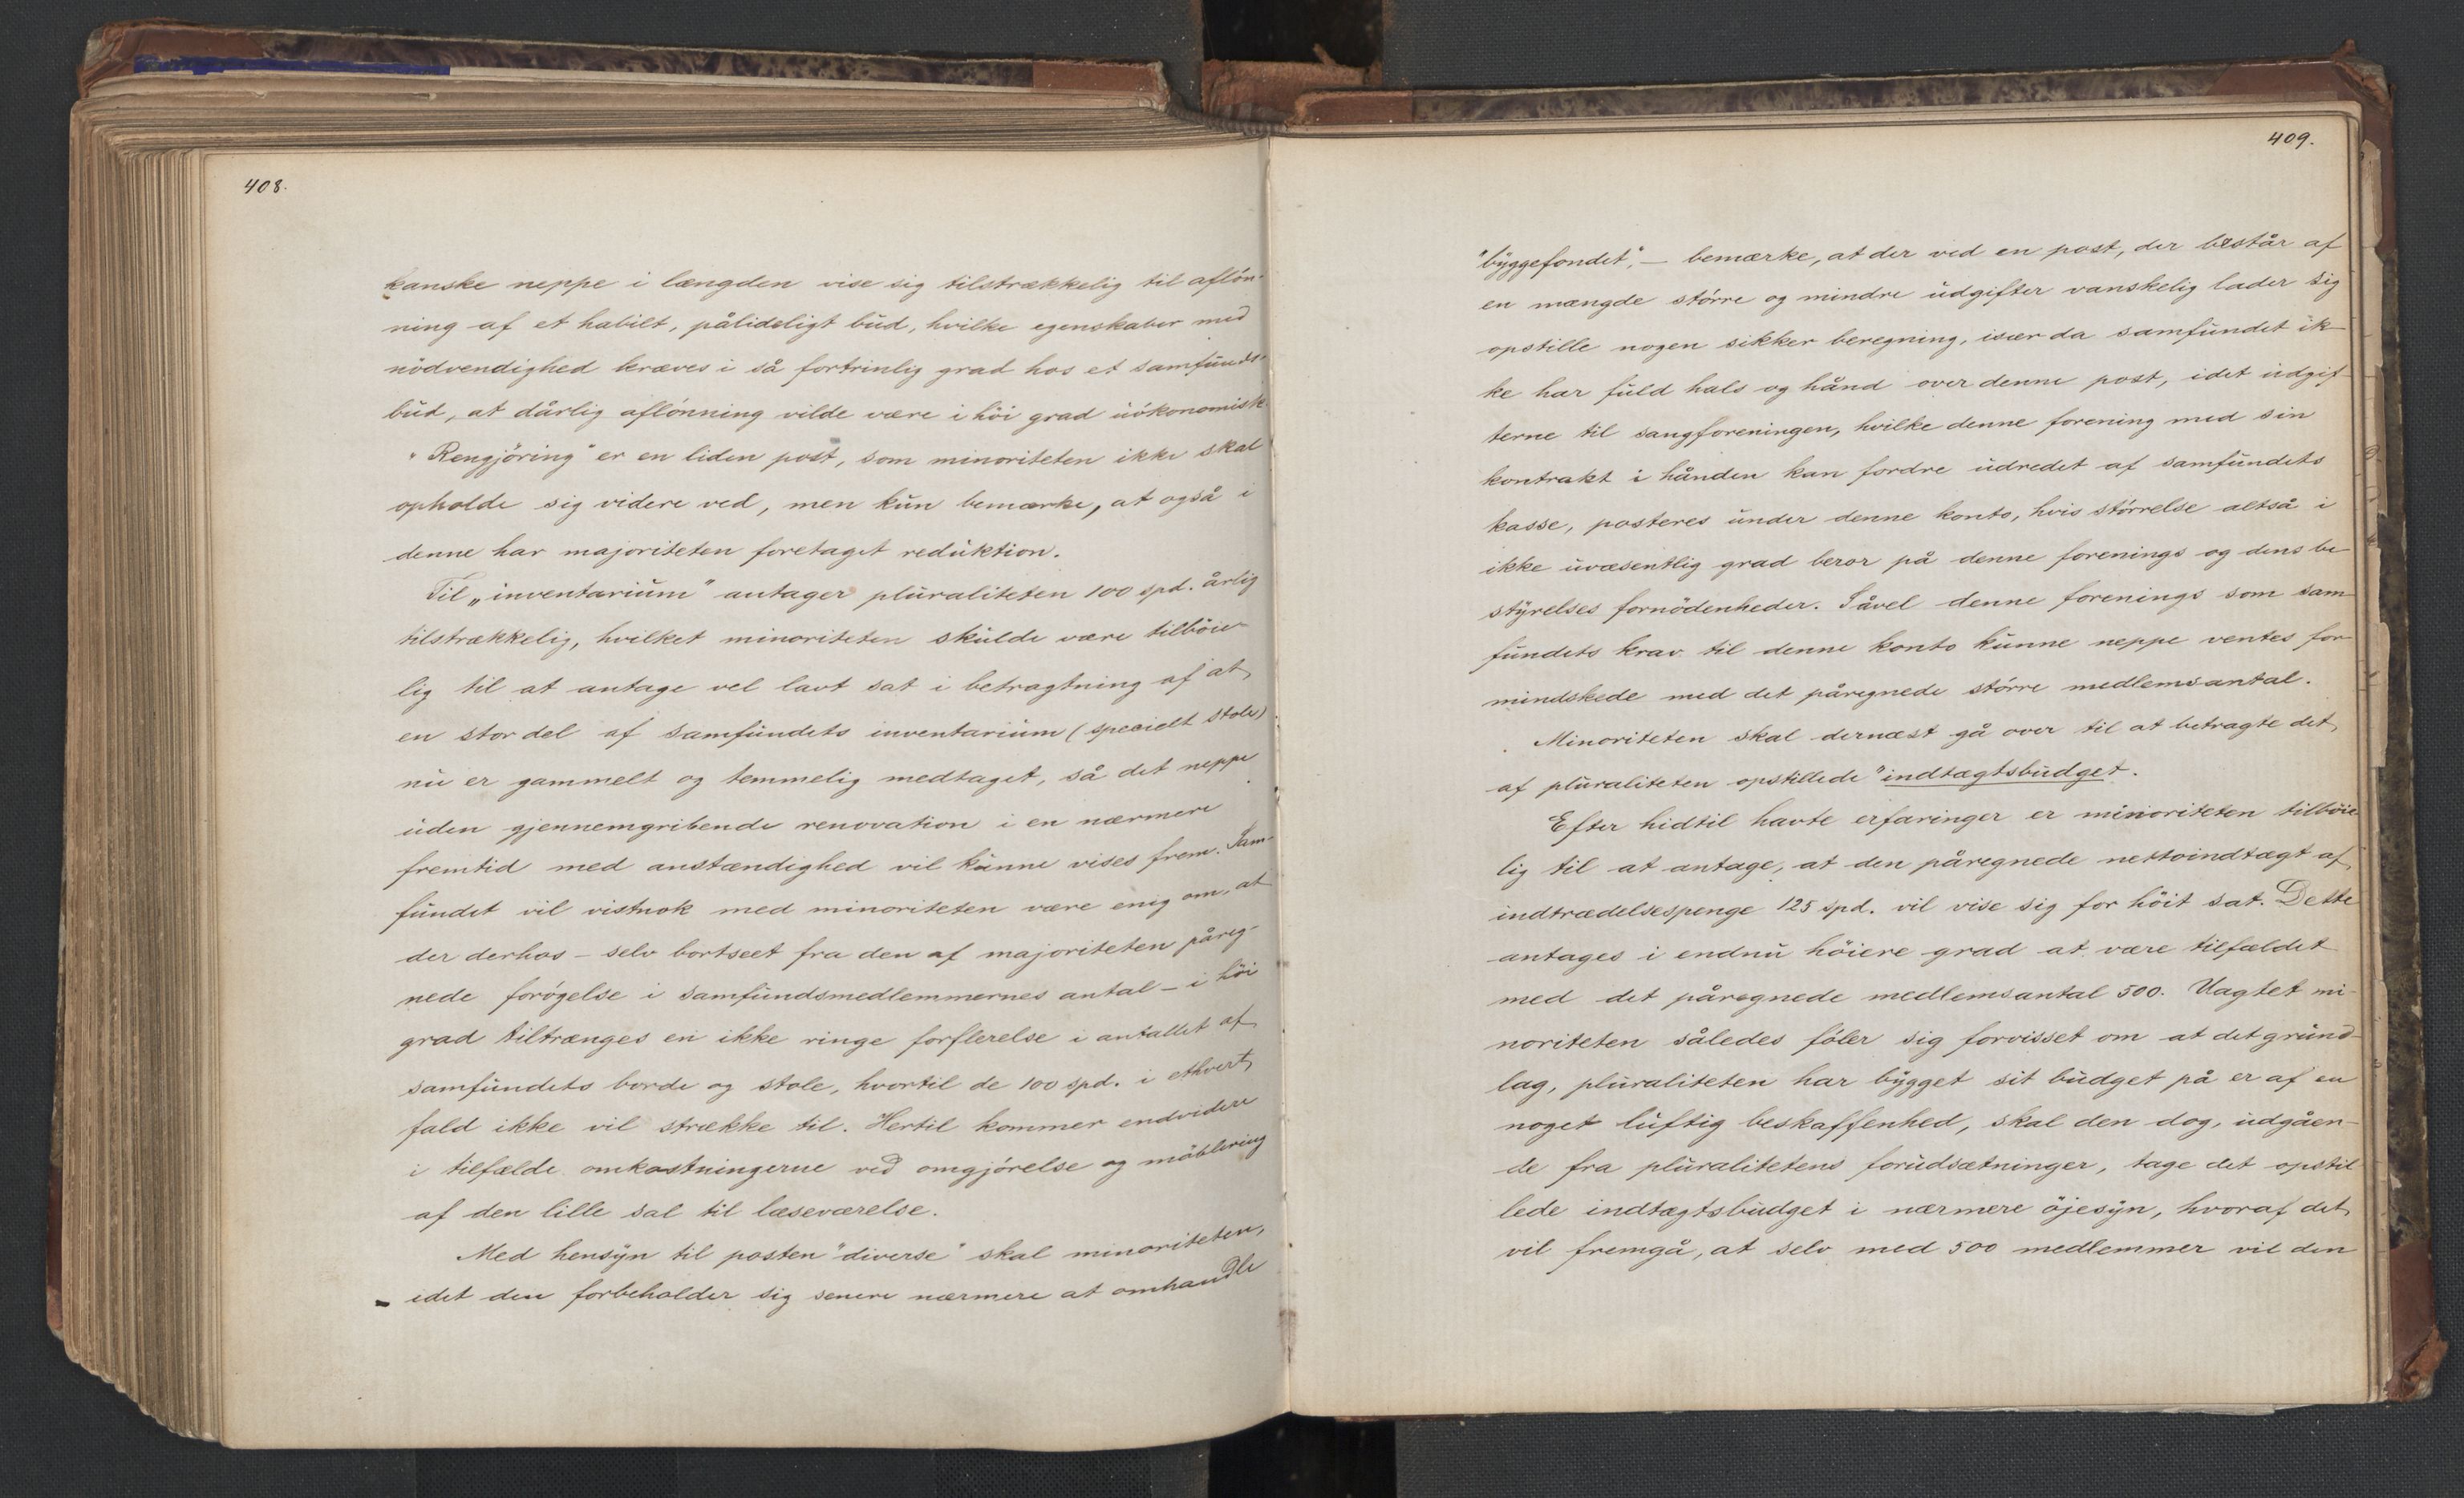 408.
kanske neppe i længden vise sig tilstrækkelig til aflön-
ning af et habilt, pålideligt bud, hvilke egenskaber med
nödvendighed kræves i så fortrinlig grad hos et samfunds-
bud, at dårlig aflönning vilde være i höi grad uökonomisk.
"Rengjöring" er en liden post, som minoriteten ikke skal
opholde sig videre ved, men kun bemærke, at også i
denne har majoriteten foretaget reduktion.
Til „inventarium" antager pluraliteten 100 spd. årlig
tilstrækkelig, hvilket minoriteten skulde være tilböie-
lig til at antage vel lavt sat i betragtning af at
en stor del af samfundets inventarium (specielt stole)
nu er gammelt og temmelig medtaget, så det neppe
uden gjennemgribende renovation i en nærmere
fremtid med anstændighed vil kunne vises frem. Sam-
fundet vil vistnok med minoriteten være enig om, at
der derhos – selv bortseet fra den af majoriteten påreg-
nede forögelse i samfundsmedlemmernes antal – i höi
grad tiltrænges en ikke ringe forflerelse i antallet af
samfundets borde og stole, hvortil de 100 spd. i ethvert
fald ikke vil strække til. Hertil kommer endvidere
i tilfælde omkostningerne ved omgjörelse og möblering
af den lille sal til læseværelse.
Med hensyn til posten "diverse" skal minoriteten,
– idet den forbeholder sig senere nærmere at omhandle
409.
"byggefondet", – bemærke, at der ved en post, der består af
en mængde större og mindre udgifter vanskelig lader sig
opstille nogen sikker beregning, især da samfundet ik-
ke har fuld hals og hånd over denne post, idet udgif-
terne til sangforeningen, hvilke denne forening med sin
kontrakt i hånden kan fordre udredet af samfundets
kasse, posteres under denne konto, hvis störrelse altså i
ikke uvæsentlig grad beror på denne forenings og dens be-
styrelses fornödenheder. Såvel denne forenings som sam-
fundets krav til denne konto kunne neppe ventes for-
mindskede med det påregnede större medlemsantal.
Minoriteten skal dernæst gå over til at betragte det
af pluraliteten opstillede "indtægtsbudget.
Efter hidtil havte erfaringer er minoriteten tilböie
lig til at antage, at den påregnede nettoindtægt af
indtrædelsespenge 125 spd. vil vise sig for höit sat. Dette
antages i endnu höiere grad at være tilfældet
med det påregnede medlemsantal 500. Uagtet mi-
noriteten således föler sig forvisset om at det grund-
lag, pluraliteten har bygget sit budget på er af en
noget luftig beskaffenhed, skal den dog, udgåen-
de fra pluralitetens forudsætninger, tage det opstil
lede indtægtsbudget i nærmere öjesyn, hvoraf det
vil fremgå, at selv med 500 medlemmer vil den